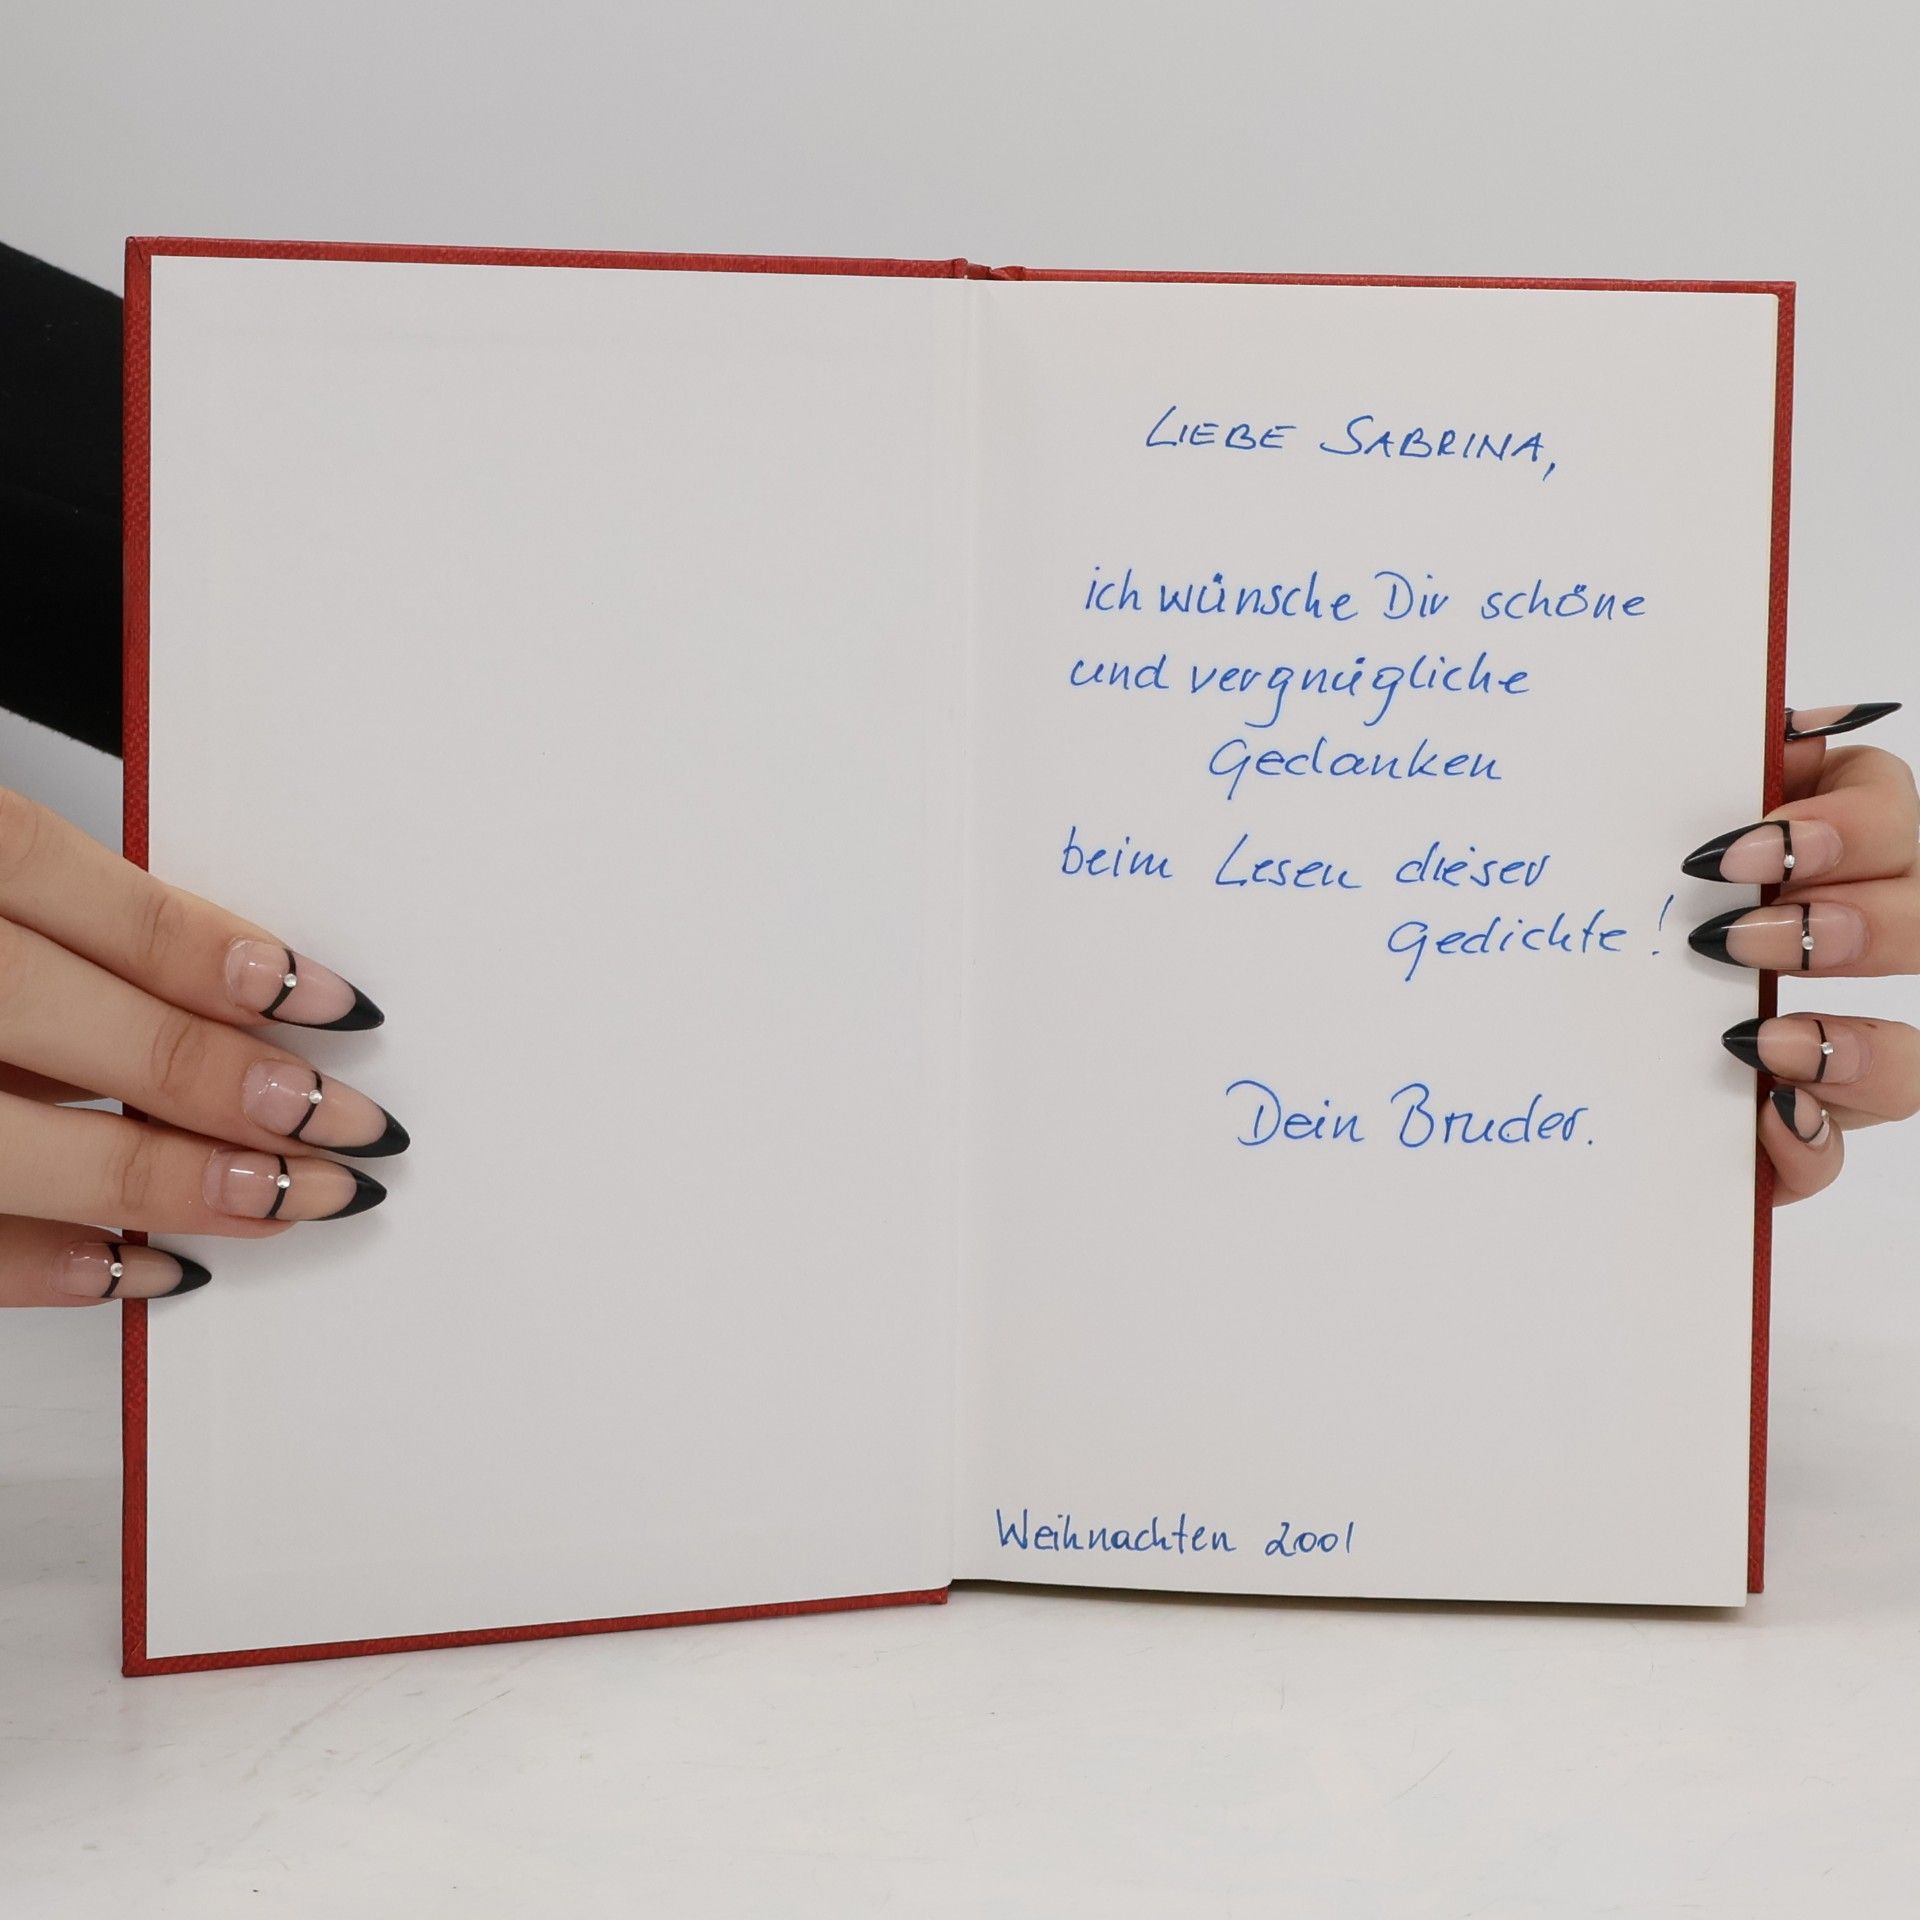 LIEBE SABRINA,
ich wünsche Dir schöne
und vergnügliche
Gedanken
beim Lesen dieser
Gedichte!
Dein Bruder.
Weihnachten 2001